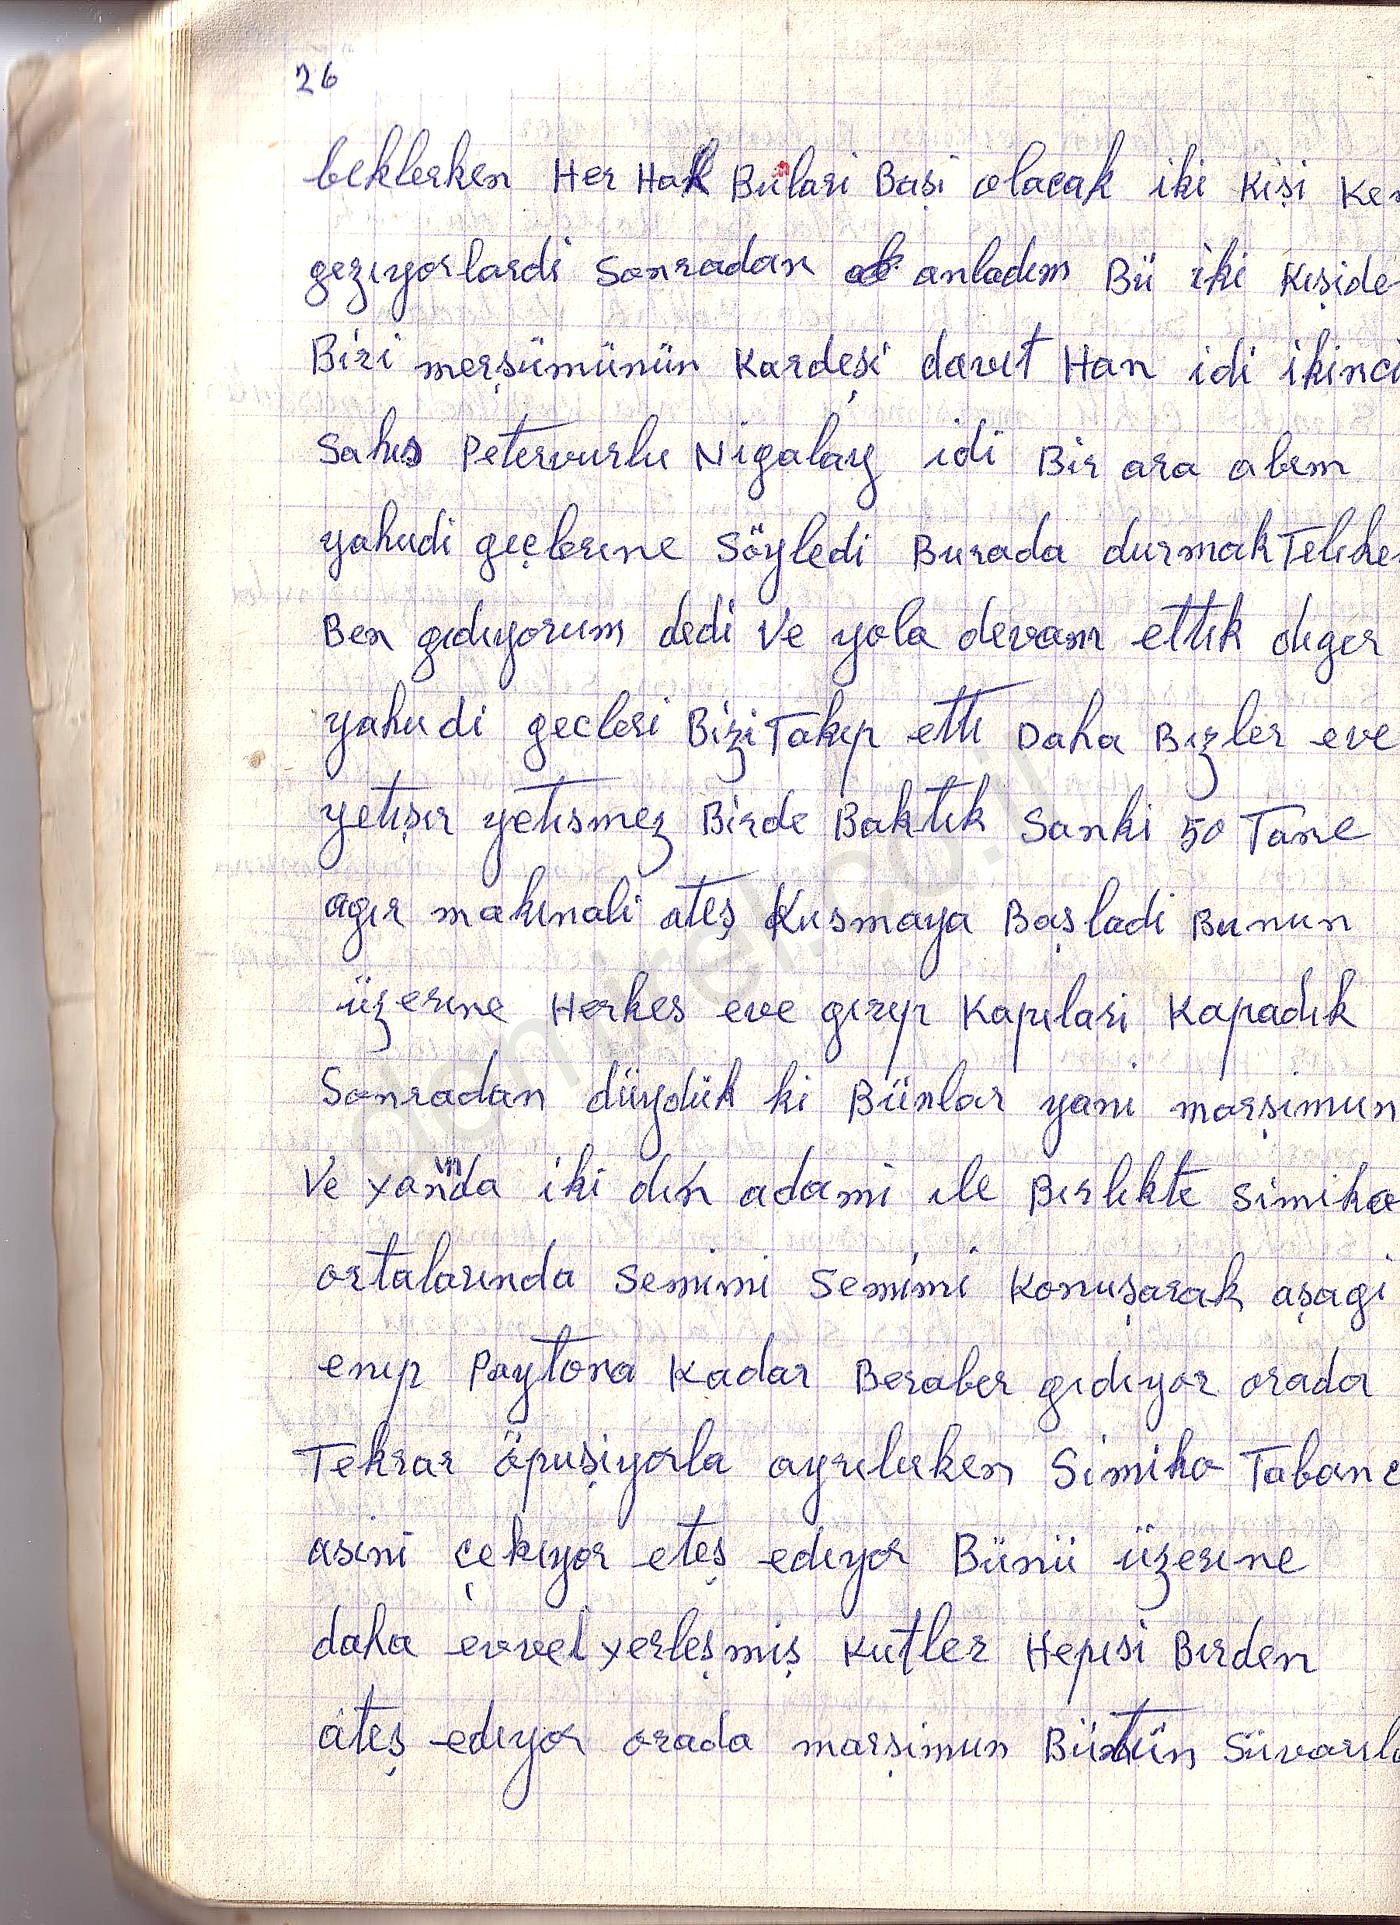 26
beklerken Her Hal Bulari Başi olacak iki Kişi
gezıyorlardi Sonradan anladım Bü iki Kışide
Biri merşümünün Kardeşi davıt Han idi ikinci
Sahıs Petervurlu Nigalay idi Bir ara abım
yahudi geçlerıne Söyledi Burada durmak Telıke
Ben gıdıyorum dedi Ve yola devam ettık dıger
yahudi gecleri Bizi Takıp ettı Daha Bızler eve
yetışır yetısmez Birde Baktık Sanki 50 Tane
agır makınali ateş Kusmaya Başladi Bunun
üzerıne Herkes eve gırıp Kapılari Kapadık
Sonradan düydük ki Bünlar yanı marşımun
Ve Yanında iki dın adami ıle Bırlıkte Simiko
ortalarında Semimi Semimi Konuşarak aşagi
enıp Paytona Kadar Beraber gıdıyor orada
Tekrar öpuşiyorla ayrılırken Simiko Tabanc
asini çekıyor eteş edıyor Bünü üzerıne
daha evvel Yerleşmiş Kutler Hepısi Bırden
ateş edıyor orada marşimun Bütün Süvarıla
demirel.co.il